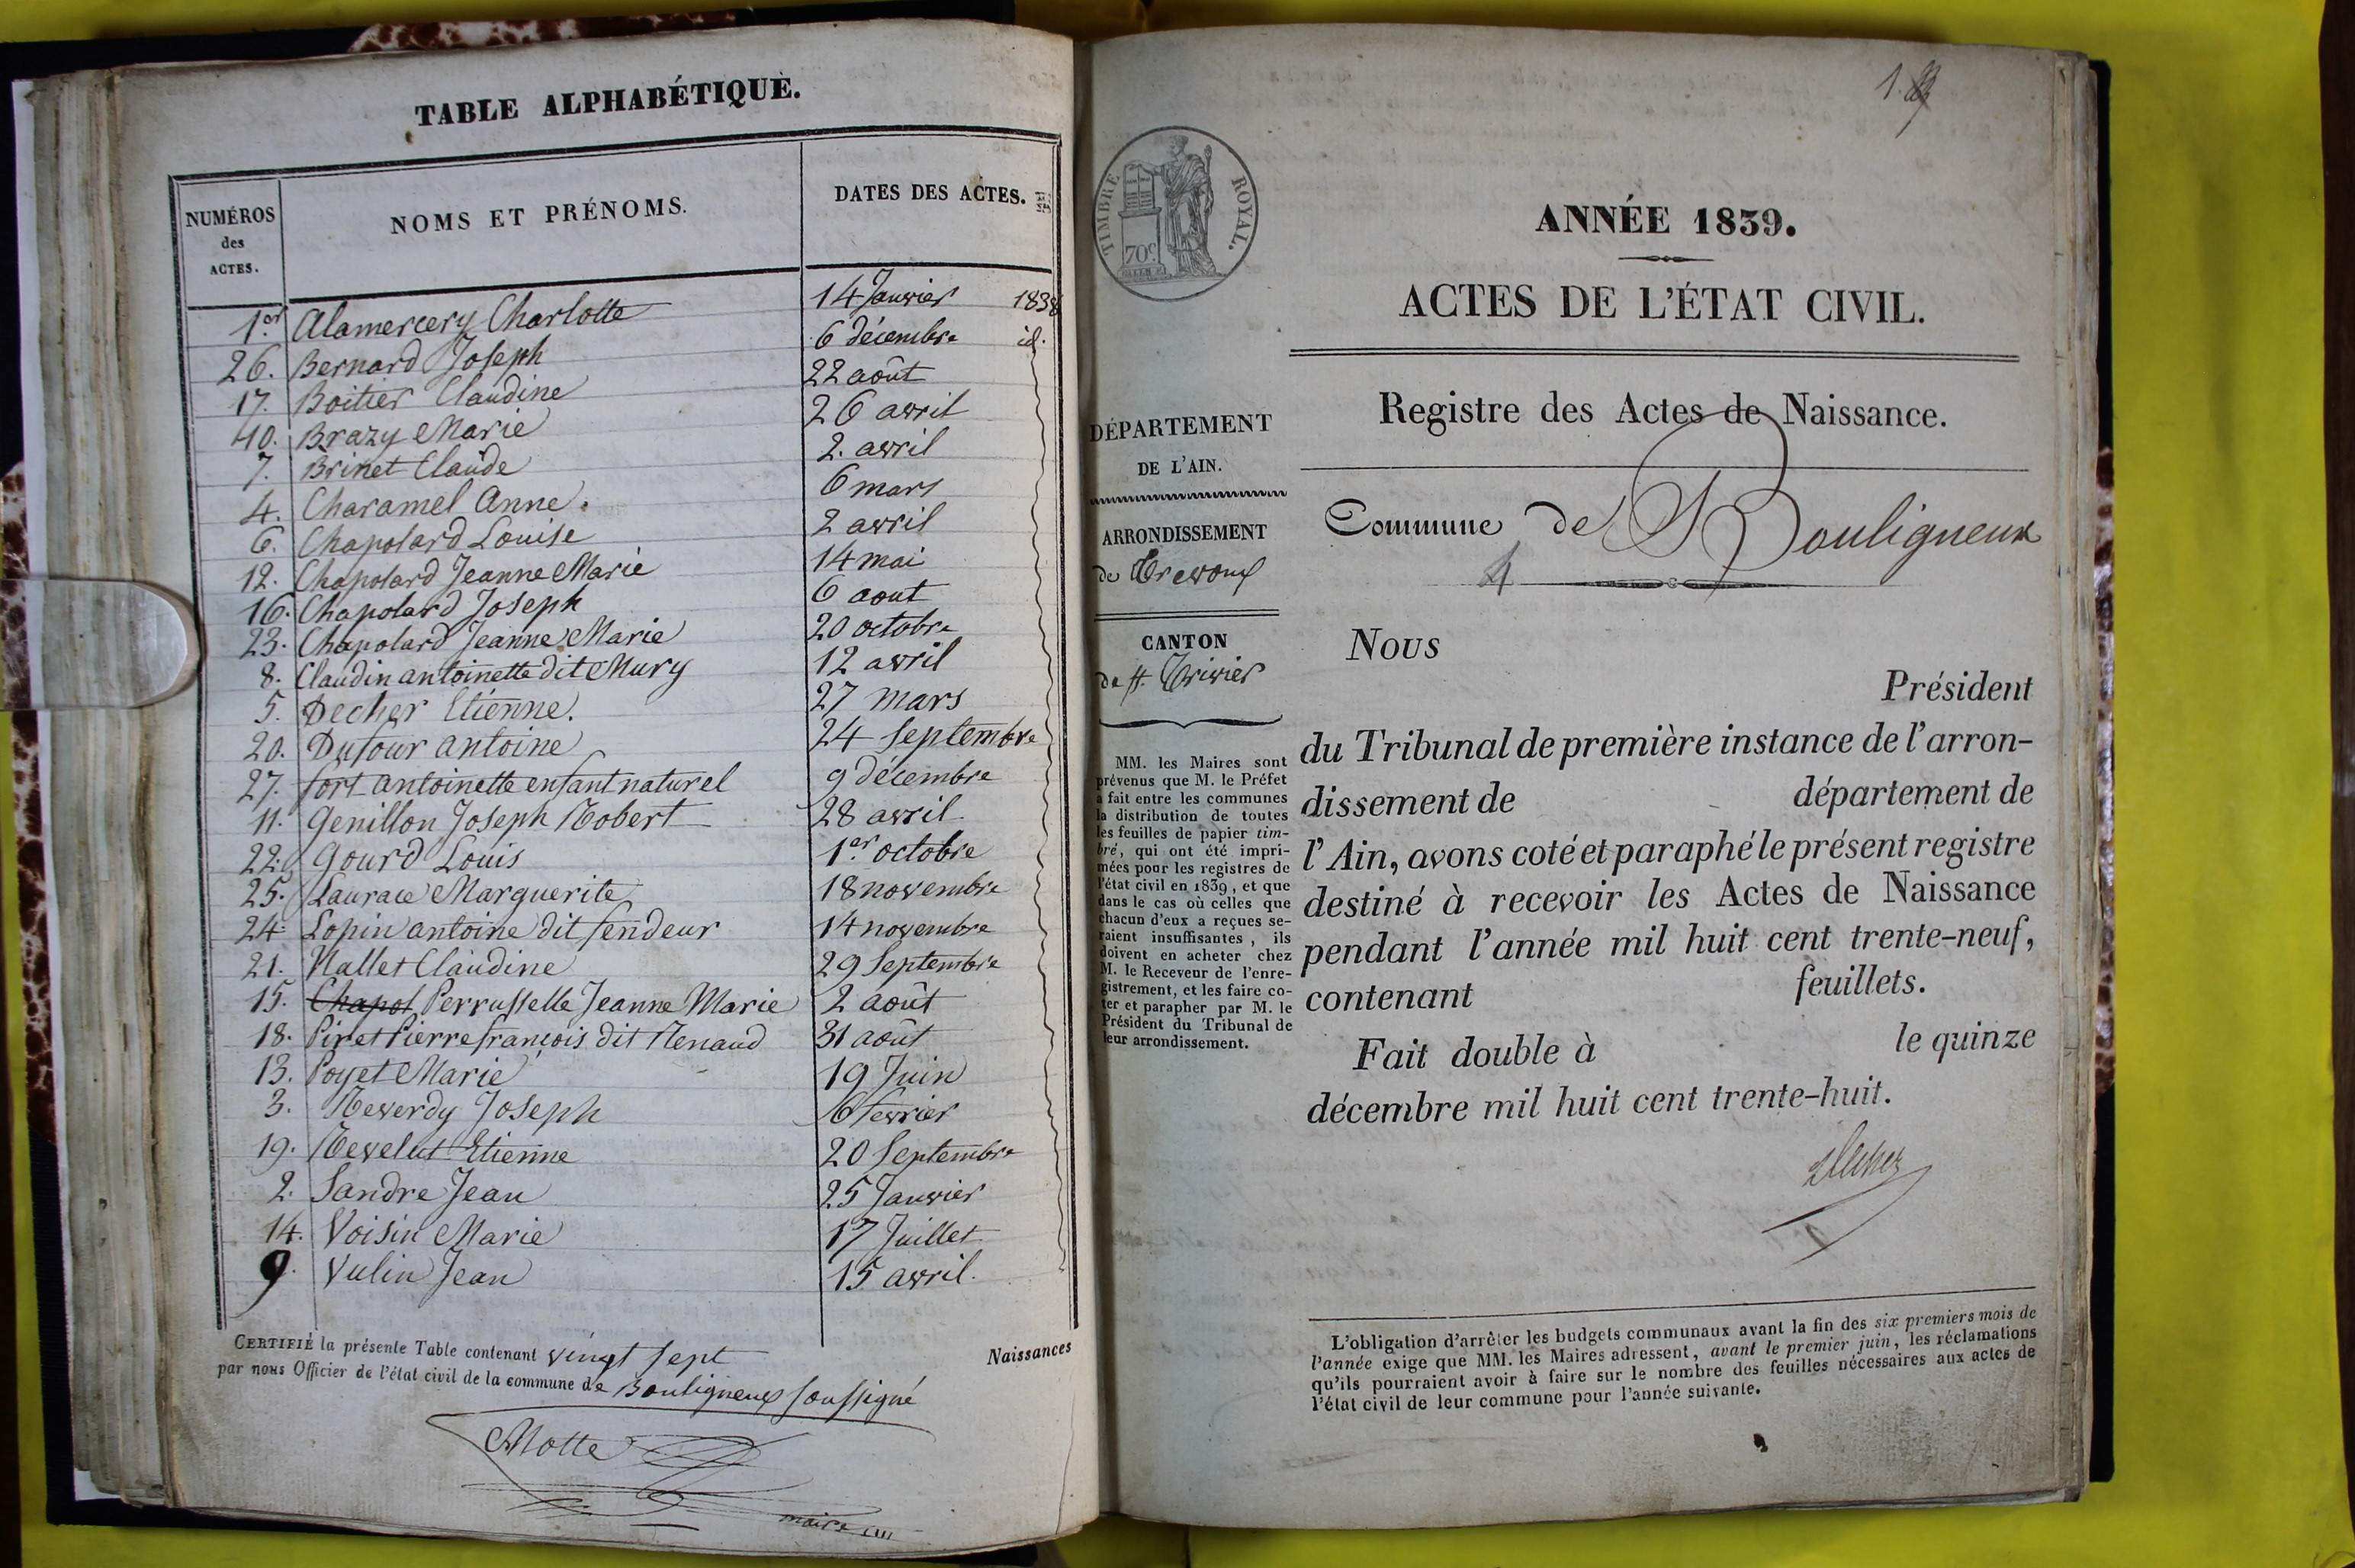 TABLE ALPHABÉTIQUE.
NUMÉROS
des
ACTES.
NOMS ET PRÉNOMS.
DATES DES ACTES.
1.er Alamercery Charlotte 14 Janvier 1838
26. Bernard Joseph 6 décembre id.
17. Boitier Claudine 22 août
10. Brazy Marie 26 avril
7. Brinet Claude 2. avril
4. Charamel Anne. 6 mars
6. Chapolard Louise 2 avril
12. Chapolard Jeanne Marie 14 mai
16. Chapolard Joseph 6 aout
23. Chapolard Jeanne Marie 20 octobre
8. Claudin antoinette dit Mury 12 avril
5. Decher Etienne. 27 mars
20. Dufour antoine 24 Septembre
27. fort antoinette enfant naturel 9 décembre
11. Genillon Joseph Robert 28 avril.
22. Gourd Louis 1.er octobre
25. Laurace Marguerite 18 novembre
24. Lopin antoine dit fendeur 14 novembre
21. Nallet Claudine 29 Septembre
15. Chapol Perrusselle Jeanne Marie 2 août
18. Piret Pierre françois dit Renaud 31 août
13. Poyet Marie 19 Juin
3. Reverdy Joseph 6 fevrier
19. Revelut Etienne 20 Septembre
2. Sandre Jean 25 Janvier
14. Voisin Marie 17 Juillet
9. Vulin Jean 15 avril.
CERTIFIÉ la présente Table contenant vingt sept
par nous Officier de l'état civil de la commune de Bouligneux soussigné
Naissances
Motte
maire
1.
TIMBRE ROYAL.
70c
ANNÉE 1839.
ACTES DE L'ÉTAT CIVIL.
Registre des Actes de Naissance.
Commune de Bouligneux
DÉPARTEMENT
DE L'AIN.
ARRONDISSEMENT
de Trevoux
CANTON
de St. Trivier
MM. les Maires sont
prévenus que M. le Préfet
a fait entre les communes
la distribution de toutes
les feuilles de papier tim-
bré, qui ont été impri-
mées pour les registres de
l'état civil en 1839, et que
dans le cas où celles que
chacun d'eux a reçues se-
raient insuffisantes, ils
doivent en acheter chez
M. le Receveur de l'enre-
gistrement, et les faire co-
ter et parapher par M. le
Président du Tribunal de
leur arrondissement.
Nous
Président
du Tribunal de première instance de l'arron-
dissement de département de
l'Ain, avons coté et paraphé le présent registre
destiné à recevoir les Actes de Naissance
pendant l'année mil huit cent trente-neuf,
contenant feuillets.
Fait double à le quinze
décembre mil huit cent trente-huit.
L'obligation d'arrêter les budgets communaux avant la fin des six premiers mois de
l'année exige que MM. les Maires adressent, avant le premier juin, les réclamations
qu'ils pourraient avoir à faire sur le nombre des feuilles nécessaires aux actes de
l'état civil de leur commune pour l'année suivante.